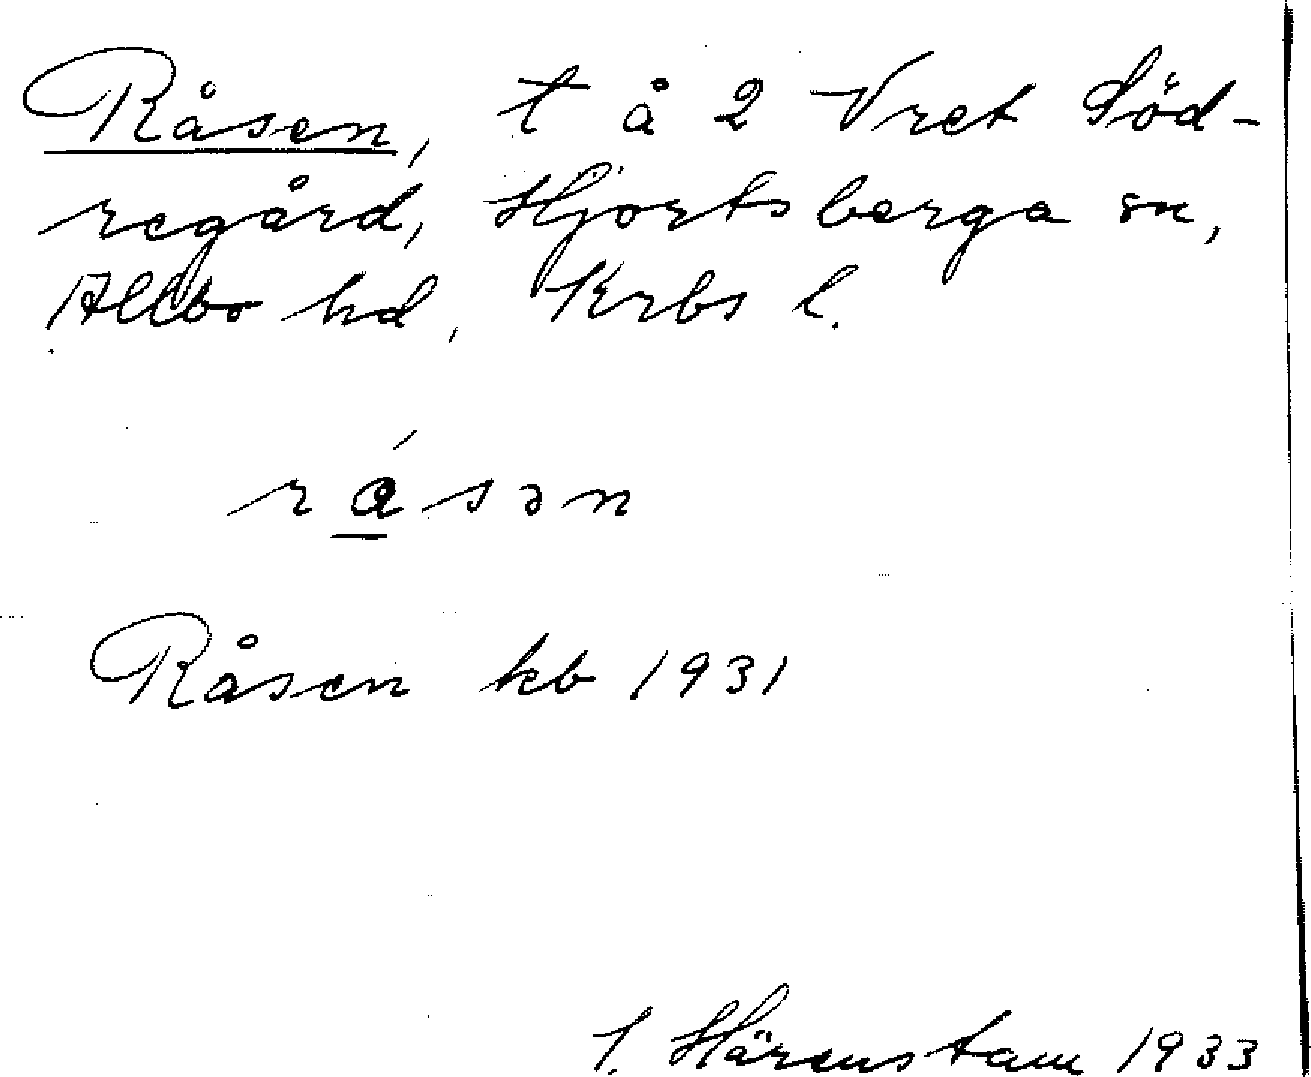 Råsen, t å 2 Vret Söd-
regård, Hjortsberga sn,
Allbo hd, Krbs l.
råsən
Råsen kb 1931
I. Härenstam 1933